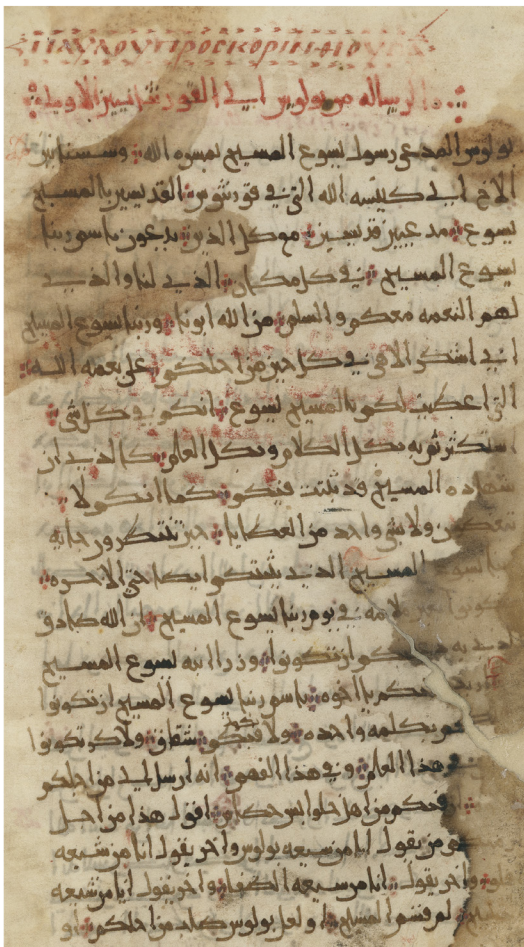 ΠΑΥΛΟΥ ΠΡΟΣ ΚΟΡΙΝΘΙΟΥΣ
الرساله من بولوس الى القورنثانيين الاوله
بولوس المدعى رسول يسوع المسيح بمسره الله وسستانيس
الاخ الى كنيسه الله التي في قورنثوس القديسين بالمسيح
يسوع مدعيين قديسين مع كل الذين يدعون باسم ربنا
يسوع المسيح في كل مكان الذي لنا والذي
لهم النعمه معكم والسلم من الله ابونا وربنا يسوع المسيح
اني اشكر الاهي في كل حين من اجلكم على نعمه الله
التي اعطيت لكم بالمسيح يسوع انكم في كل شي
استكثرتم به بكل الكلام وبكل العلم كالذي ان
شهاده المسيح قد ثبتت فيكم كما انكم لا
ولا شي واحد من العطايا حين تنتظرون جايه
المسيح الذي يثبتكم ايضا حتى الاخره
لامه في يوم ربنا يسوع المسيح ان الله صادق
ان تكونوا وذر ابنه يسوع المسيح
يا اخوه باسم ربنا يسوع المسيح ان تكونوا
بكلمه واحده ولا فيكم شقاق ولاكن تكونوا
هذا العلم وفي هذا الفهم انه ارسل الي من اجلكم
من اهل خلوايس اقول هذا من اجل
من يقول انا من سيعه بولوس واخر يقول انا من شيعه
واخر يقول انا من سيعه الصفا واخر يقول انا من شيعه
لم قسم المسيح او لعل بولوس صلب من اجلكم او